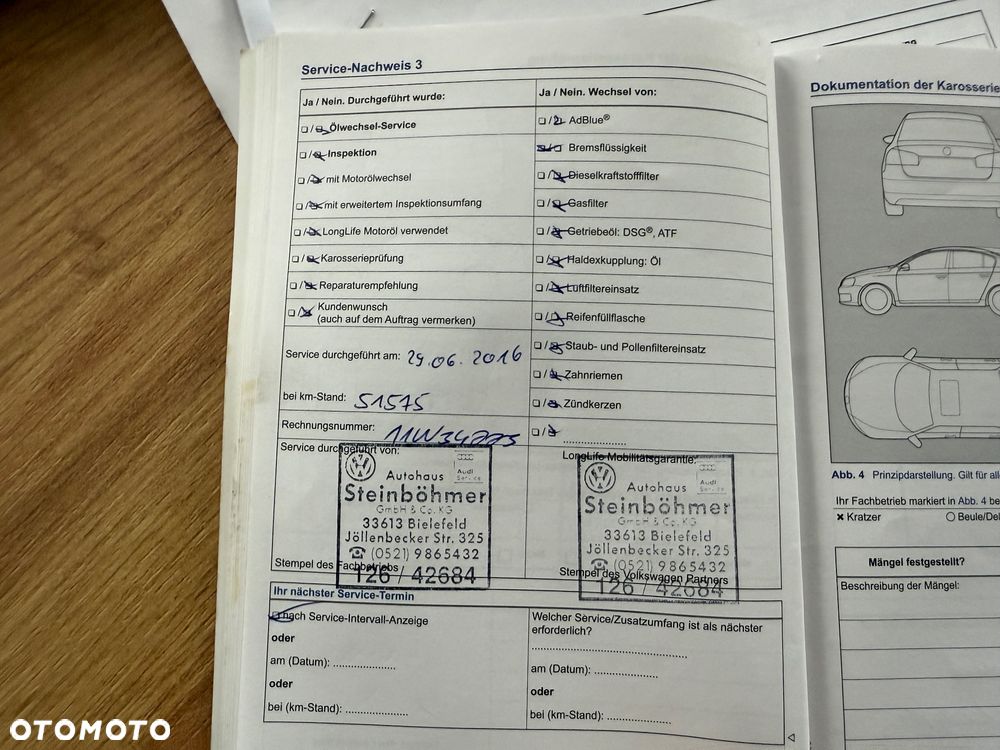 Service-Nachweis 3
Ja / Nein. Durchgeführt wurde:
Ölwechsel-Service
Inspektion
mit Motorölwechsel
mit erweitertem Inspektionsumfang
LongLife Motoröl verwendet
Karosserieprüfung
Reparaturempfehlung
Kundenwunsch
(auch auf dem Auftrag vermerken)
Service durchgeführt am: 29.06.2016
bei km-Stand: 51575
Rechnungsnummer:
Service durchgeführt von:
Autohaus
Audi
Service
Steinböhmer
GmbH & Co. KG
33613 Bielefeld
Jöllenbecker Str. 325
☎ (0521) 9865432
126 / 42684
Stempel des Fachbetriebs
Ja / Nein. Wechsel von:
AdBlue®
Bremsflüssigkeit
Dieselkraftstofffilter
Gasfilter
Getriebeöl: DSG®, ATF
Haldexkupplung: Öl
Luftfiltereinsatz
Reifenfüllflasche
Staub- und Pollenfiltereinsatz
Zahnriemen
Zündkerzen
LongLife Mobilitätsgarantie:
Autohaus
Steinböhmer
GmbH & Co. KG
33613 Bielefeld
Jöllenbecker Str. 325
☎ (0521) 9865432
126 / 42684
Stempel des Volkswagen Partners
Ihr nächster Service-Termin
nach Service-Intervall-Anzeige
oder
am (Datum): ..................
oder
bei (km-Stand): ..................
Welcher Service/Zusatzumfang ist als nächster
erforderlich?
am (Datum): ..................
oder
bei (km-Stand): ..................
Dokumentation der Karosserie
Abb. 4 Prinzipdarstellung. Gilt für
Ihr Fachbetrieb markiert in Abb. 4
✖ Kratzer
○ Beule/
Mängel festgestellt?
Beschreibung der Mängel:
OTOMOTO